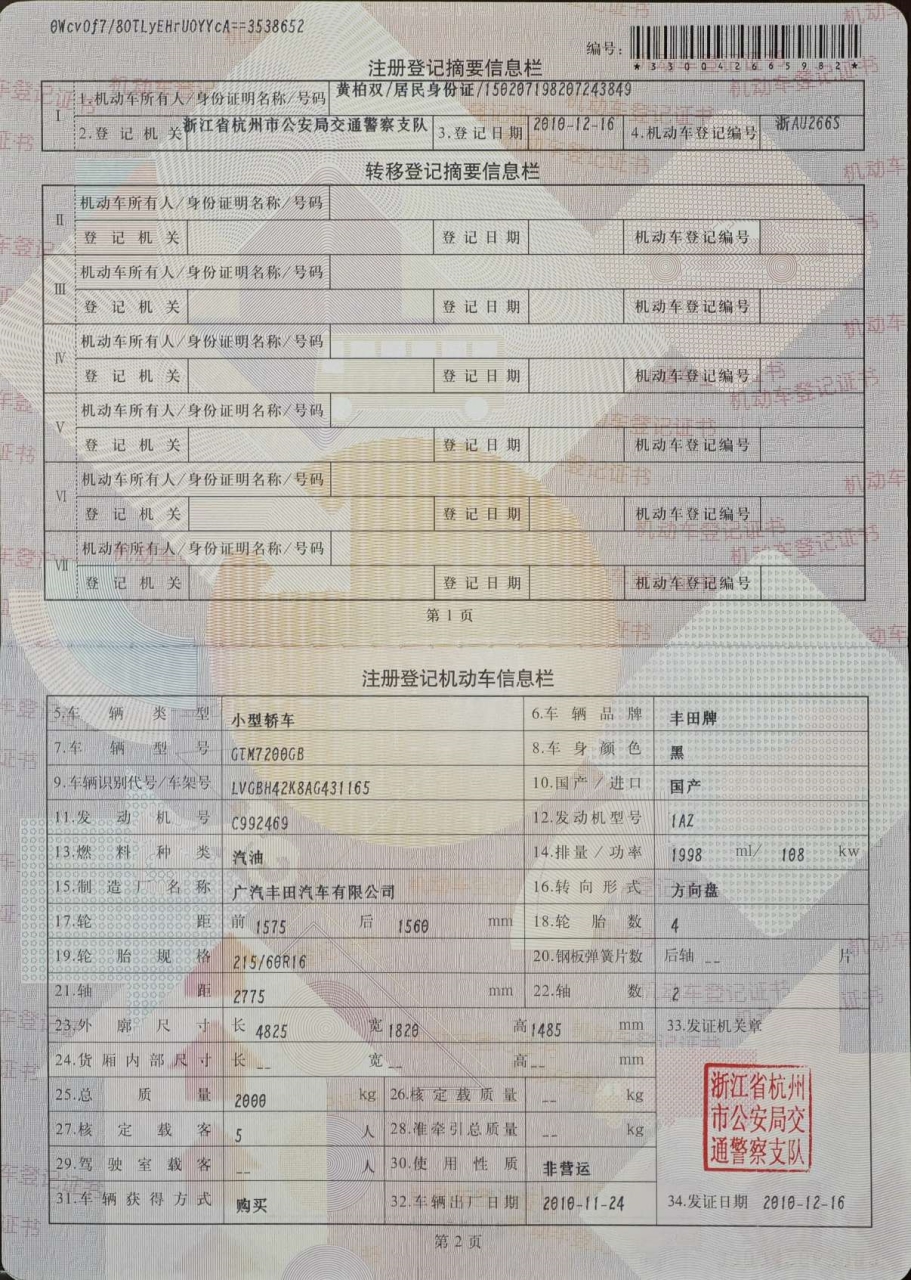 0WcvOf7/8OTLyEHrUOYYcA==3538652
编号:
*330042665982*
注册登记摘要信息栏
I 1.机动车所有人/身份证明名称/号码 黄柏双/居民身份证/150207198207243849
2.登记机关 浙江省杭州市公安局交通警察支队 3.登记日期 2010-12-16 4.机动车登记编号 浙AU266S
转移登记摘要信息栏
II 机动车所有人/身份证明名称/号码
登记机关 登记日期 机动车登记编号
III 机动车所有人/身份证明名称/号码
登记机关 登记日期 机动车登记编号
IV 机动车所有人/身份证明名称/号码
登记机关 登记日期 机动车登记编号
V 机动车所有人/身份证明名称/号码
登记机关 登记日期 机动车登记编号
VI 机动车所有人/身份证明名称/号码
登记机关 登记日期 机动车登记编号
VII 机动车所有人/身份证明名称/号码
登记机关 登记日期 机动车登记编号
第1页
注册登记机动车信息栏
5.车辆类型 小型轿车 6.车辆品牌 丰田牌
7.车辆型号 GTM7200GB 8.车身颜色 黑
9.车辆识别代号/车架号 LVGBH42K8AG431165 10.国产/进口 国产
11.发动机号 C992469 12.发动机型号 1AZ
13.燃料种类 汽油 14.排量/功率 1998 ml/ 108 kw
15.制造厂名称 广汽丰田汽车有限公司 16.转向形式 方向盘
17.轮距 前 1575 后 1560 mm 18.轮胎数 4
19.轮胎规格 215/60R16 20.钢板弹簧片数 后轴 -- 片
21.轴距 2775 mm 22.轴数 2
23.外廓尺寸 长 4825 宽 1820 高 1485 mm 33.发证机关章
24.货厢内部尺寸 长 -- 宽 -- 高 -- mm
25.总质量 2000 kg 26.核定载质量 -- kg
27.核定载客 5 人 28.准牵引总质量 -- kg
浙江省杭州
市公安局交
通警察支队
29.驾驶室载客 -- 人 30.使用性质 非营运
31.车辆获得方式 购买 32.车辆出厂日期 2010-11-24 34.发证日期 2010-12-16
第2页